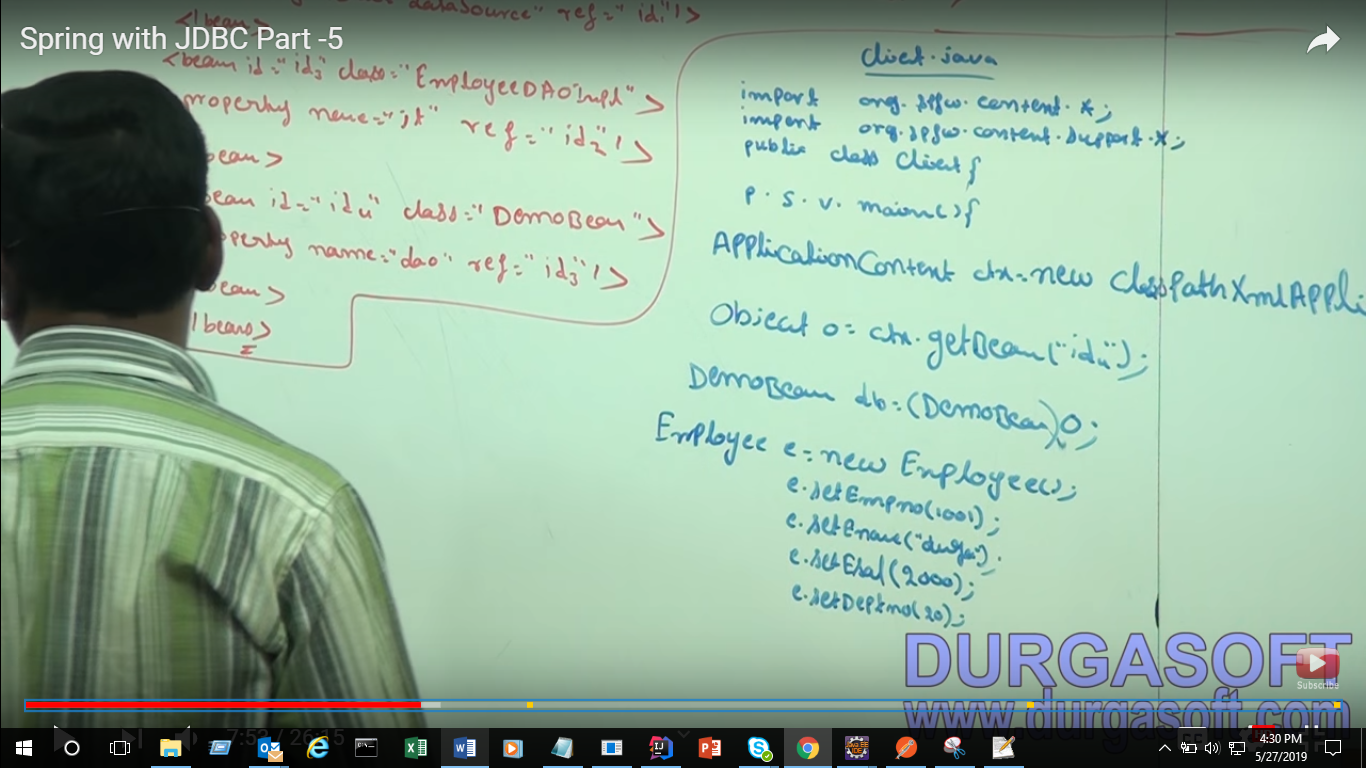 Spring with JDBC Part -5
dataSource" ref="id1"/>
</bean>
<bean id="id3" class="EmployeeDAOImpl">
property name="jt" ref="id2"/>
bean>
bean id="id4" class="DemoBean">
operty name="dao" ref="id3"/>
bean>
/beans>
Client.java
import org.spfw.context.*;
import org.spfw.context.support.*;
public class Client{
p.s.v.main(){
ApplicationContext ctx=new ClassPathXmlAppli
Object o=ctx.getBean("id4");
DemoBean db=(DemoBean)o;
Employee e=new Employee();
e.setEmpno(1001);
e.setEname("durga");
e.setEsal(2000);
e.setDeptno(20);
DURGASOFT
www.durgasoft.com
Subscribe
7:53 / 26:15
4:30 PM
5/27/2019